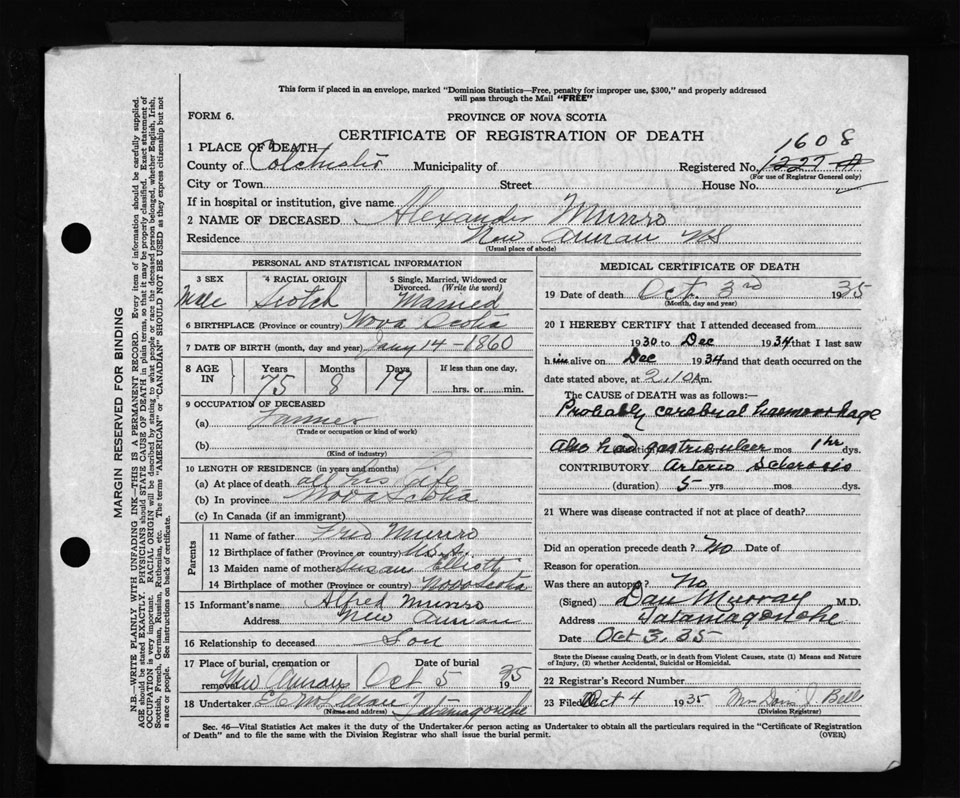 This form if placed in an envelope, marked "Dominion Statistics—Free, penalty for improper use, $300," and properly addressed
will pass through the Mail "FREE"
FORM 6.
PROVINCE OF NOVA SCOTIA
CERTIFICATE OF REGISTRATION OF DEATH
1608
1 PLACE OF DEATH
County of Colchester Municipality of Registered No. 1227 A
(For use of Registrar General only)
City or Town Street House No.
If in hospital or institution, give name
2 NAME OF DECEASED Alexander Munro
Residence New Annan NS
(Usual place of abode)
PERSONAL AND STATISTICAL INFORMATION
3 SEX 4 RACIAL ORIGIN 5 Single, Married, Widowed or
Divorced. (Write the word)
Male Scotch Married
6 BIRTHPLACE (Province or country) Nova Scotia
7 DATE OF BIRTH (month, day and year) Jany 14 - 1860
8 AGE IN Years Months Days If less than one day,
75 8 19 hrs. or min.
9 OCCUPATION OF DECEASED
(a) Farmer
(Trade or occupation or kind of work)
(b)
(Kind of industry)
10 LENGTH OF RESIDENCE (in years and months)
(a) At place of death all his life
(b) In province Nova Scotia
(c) In Canada (if an immigrant)
Parents
11 Name of father Fred Munro
12 Birthplace of father (Province or country)
13 Maiden name of mother Susan Elliott
14 Birthplace of mother (Province or country) Nova Scotia
15 Informant's name Alfred Munro
Address New Annan
16 Relationship to deceased Son
17 Place of burial, cremation or Date of burial
removal New Annan Oct 5 1935
18 Undertaker Tatamagouche
(Name and address)
MEDICAL CERTIFICATE OF DEATH
19 Date of death Oct. 3rd 1935
(Month, day and year)
20 I HEREBY CERTIFY that I attended deceased from
1930 to Dec 1934 that I last saw
him alive on Dec 1934 and that death occurred on the
date stated above, at 2.10 A m.
The CAUSE OF DEATH was as follows:
Probably cerebral haemorrhage
also had gastric ulcer mos 1 hr dys.
CONTRIBUTORY Arterio Sclerosis
(duration) 5 yrs mos. dys.
21 Where was disease contracted if not at place of death?
Did an operation precede death? No Date of
Reason for operation
Was there an autopsy? No
(Signed) Dan Murray M.D.
Address Tatamagouche
Date Oct 3. 35
State the Disease causing Death, or in death from Violent Causes, state (1) Means and Nature
of Injury, (2) whether Accidental, Suicidal or Homicidal.
22 Registrar's Record Number
23 Filed Oct 4 1935 Mrs Doris J Bell
(Division Registrar)
Sec. 46—Vital Statistics Act makes it the duty of the Undertaker or person acting as Undertaker to obtain all the particulars required in the "Certificate of Registration
of Death" and to file the same with the Division Registrar who shall issue the burial permit. (OVER)
MARGIN RESERVED FOR BINDING
N.B.—WRITE PLAINLY WITH UNFADING INK—THIS IS A PERMANENT RECORD. Every item of information should be carefully supplied.
AGE should be stated EXACTLY. PHYSICIANS should STATE CAUSE OF DEATH in plain terms, so that it may be properly classified. Exact statement of
OCCUPATION is very important. RACIAL ORIGIN will be described by stating to what people or race the deceased person belonged, whether English, Irish,
Scottish, French, German, Russian, Ruthenian, etc. The terms "AMERICAN" or "CANADIAN" SHOULD NOT BE USED as they express citizenship but not
a race or people. See instructions on back of certificate.